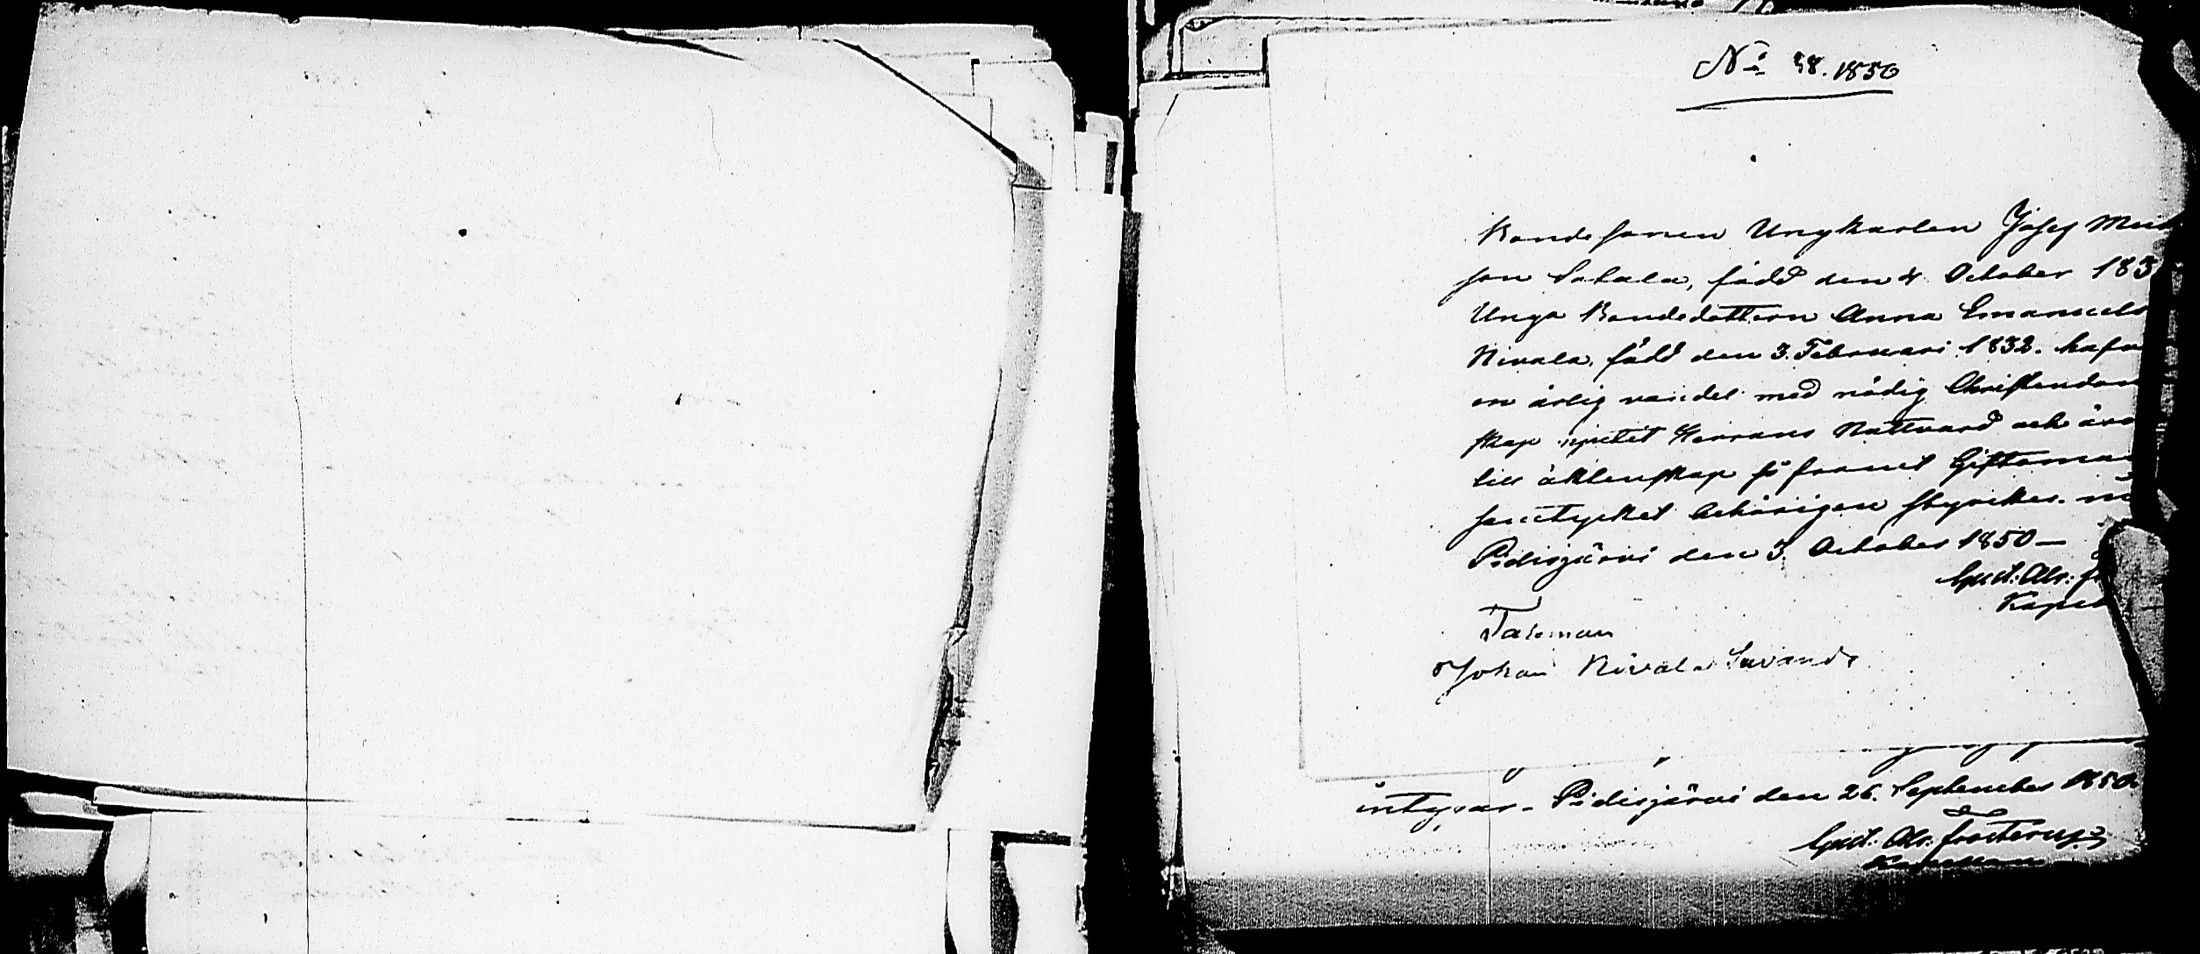 No 58. 1850
Bondesonen Ungkarlen Josef
son Sakala, född den 4 October 183
Unga Bondedottern Anna Emanuels
Nivala, född den 3. Februari 1832. hafva
en ärlig vandel med nödig Christendom
skap njutit Herrans Nattvard och äro
till äktenskap
samtycket behörigen styrkes.
Pidisjärvi den 3. October 1850 —
Gust: Abr: f
Kapel
Taleman
Johan Nivala
intygar. Pidisjärvi den 26. September 1850.
Gust: Abr: Frosterus
Kapellan